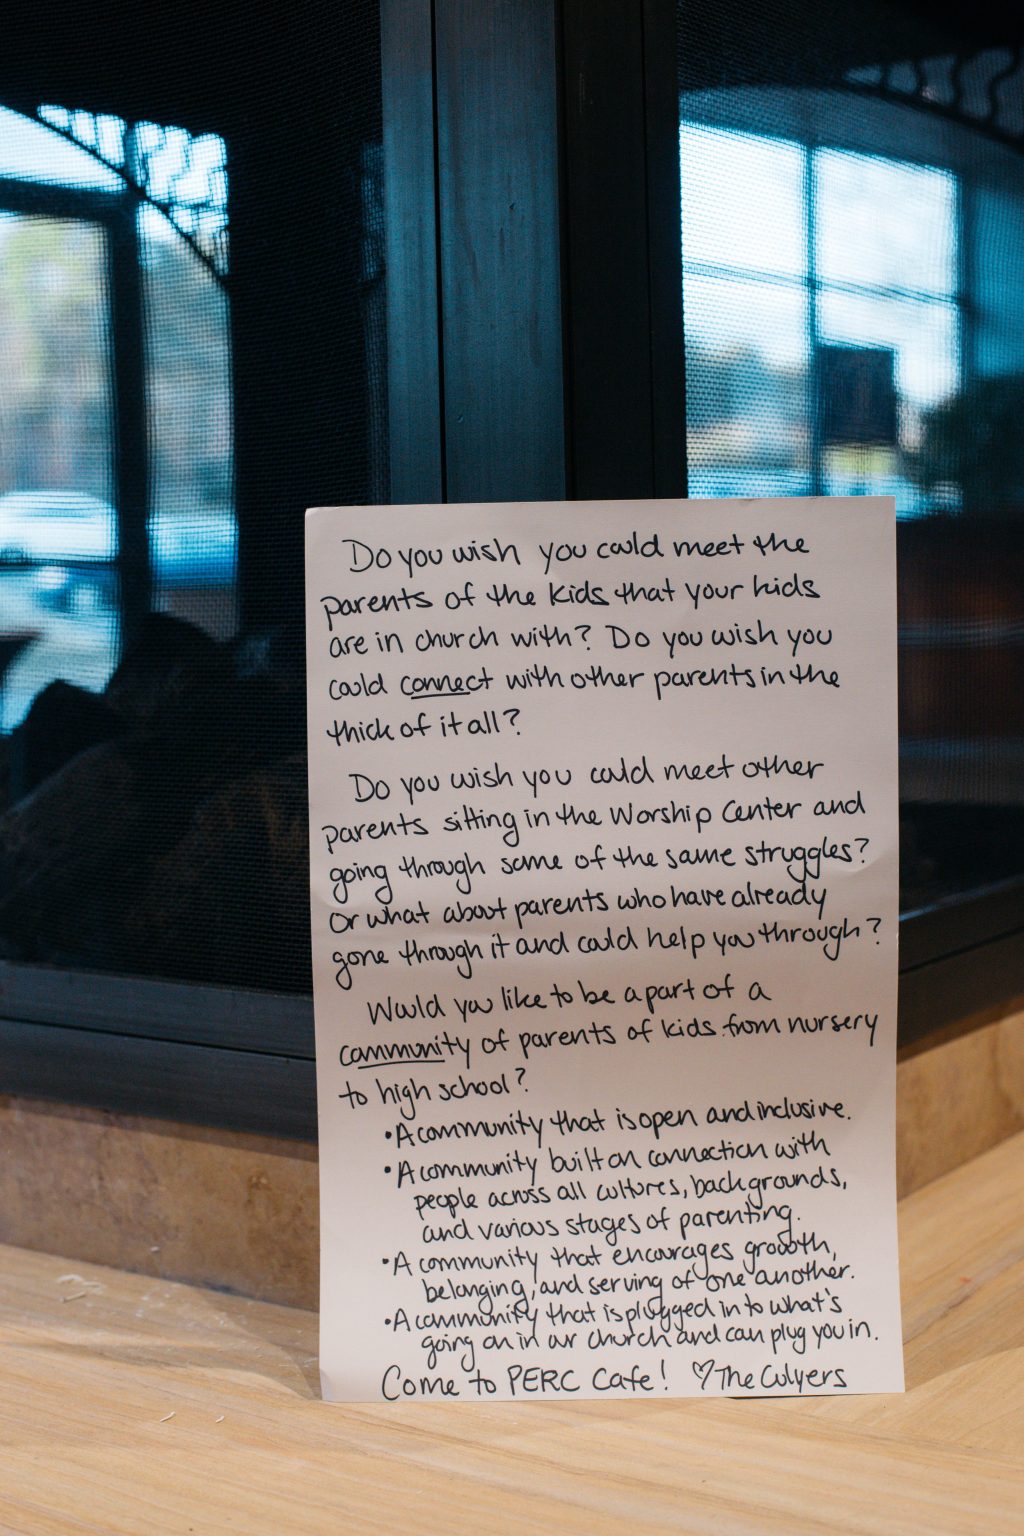 Do you wish you could meet the
parents of the kids that your kids
are in church with? Do you wish you
could connect with other parents in the
thick of it all?
Do you wish you could meet other
parents sitting in the Worship Center and
going through some of the same struggles?
Or what about parents who have already
gone through it and could help you through?
Would you like to be a part of a
community of parents of kids from nursery
to high school?
• A community that is open and inclusive.
• A community built on connection with
people across all cultures, backgrounds,
and various stages of parenting.
• A community that encourages growth,
belonging, and serving of one another.
• A community that is plugged in to what's
going on in our church and can plug you in.
Come to PERC Cafe! ♡ The Culyers